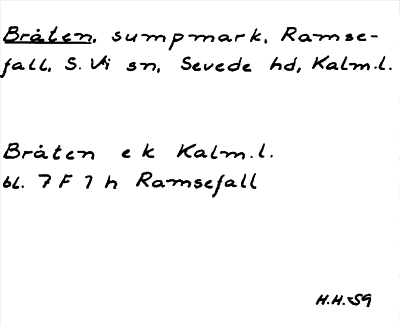 Bråten, sumpmark, Ramse-
fall, S. Vi sn, Sevede hd, Kalm.l.
Bråten ek Kalm.l.
bl. 7 F 1 h Ramsefall
H.H.-59